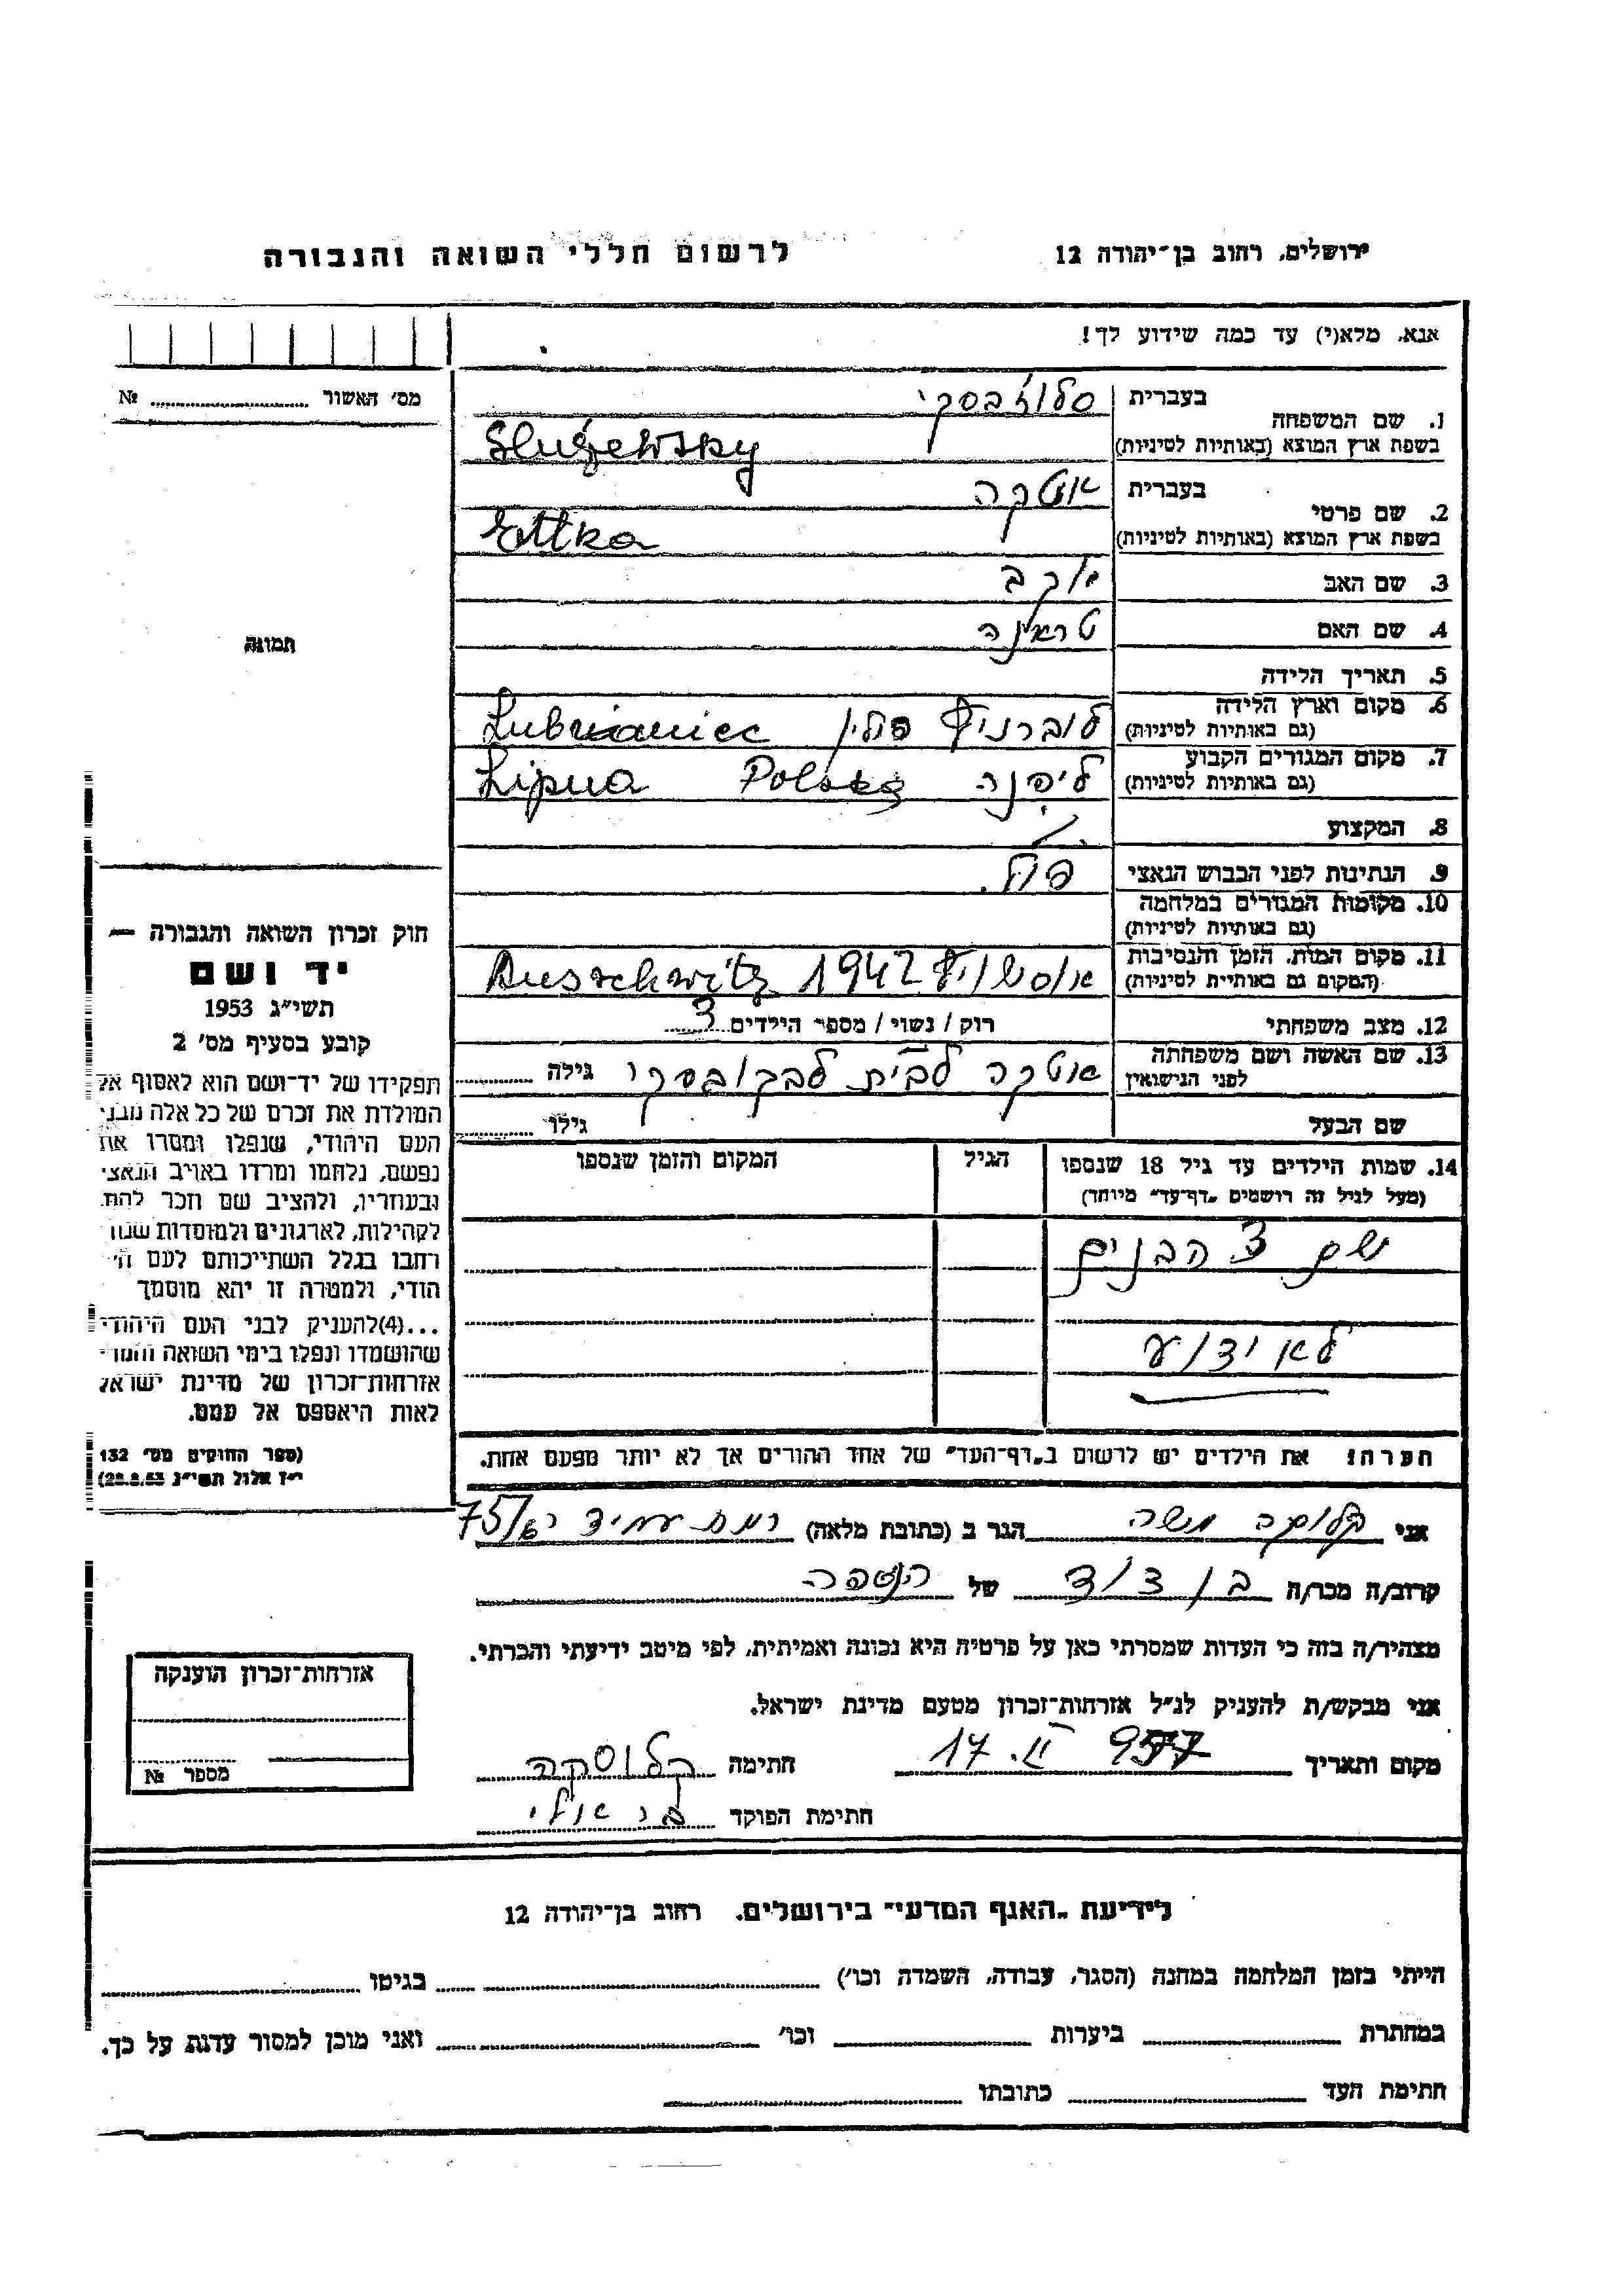 ירושלים, רחוב בן־יהודה 12
לרשום חללי השואה והגבורה
אנא, מלא(י) עד כמה שידוע לך!
מס' האשור № ........
1. שם המשפחה
בעברית סלוז'בסקי
בשפת ארץ המוצא (באותיות לטיניות) Slużewsky
2. שם פרטי
בעברית אטקה
בשפת ארץ המוצא (באותיות לטיניות) Ettka
3. שם האב
4. שם האם
5. תאריך הלידה
6. מקום וארץ הלידה לוברניץ פולין Lubraniec
(גם באותיות לטיניות)
7. מקום המגורים הקבוע ליפנה Polska Lipna
(גם באותיות לטיניות)
8. המקצוע
9. הנתינות לפני הכבוש הנאצי פול.
10. מקומות המגורים במלחמה
(גם באותיות לטיניות)
11. מקום המות, הזמן והנסיבות אוסשויץ 1942 Ausschwitz
(המקום גם באותיות לטיניות)
12. מצב משפחתי רוק / נשוי / מספר הילדים 3
13. שם האשה ושם משפחתה אטקה לבית לבקובסקי גילה
לפני הנישואין
שם הבעל גילו
14. שמות הילדים עד גיל 18 שנספו הגיל המקום והזמן שנספו
(מעל לגיל זה רושמים „דף־עד" מיוחד)
שם 3 הבנים
לא ידוע
הערה: את הילדים יש לרשום ב„דף־העד" של אחד ההורים אך לא יותר מפעם אחת.
תמונה
חוק זכרון השואה והגבורה —
יד ושם
תשי"ג 1953
קובע בסעיף מס' 2
תפקידו של יד־ושם הוא לאסוף אל
המולדת את זכרם של כל אלה מבני
העם היהודי, שנפלו ומסרו את
נפשם, נלחמו ומרדו באויב הנאצי
ובעוזריו, ולהציב שם וזכר להם,
לקהילות, לארגונים ולמוסדות שנח
רחבו בגלל השתייכותם לעם הי
הודי, ולמטרה זו יהא מוסמך
...(4) להעניק לבני העם היהודי
שהושמדו ונפלו בימי השואה והמרי
אזרחות־זכרון של מדינת ישראל
לאות היאספם אל עמם.
(ספר החוקים מס' 132
י"ז אלול תשי"ג 28.8.53)
אני קלוסקה משה הגר ב (כתובת מלאה) רמת עמידר 75/
קרוב/ה מכר/ה בן דוד של הנספה
מצהיר/ה בזה כי העדות שמסרתי כאן על פרטיה היא נכונה ואמיתית, לפי מיטב ידיעתי והכרתי.
אני מבקש/ת להעניק לנ"ל אזרחות־זכרון מטעם מדינת ישראל.
מקום ותאריך 17. II. 957 חתימה קלוסקה
חתימת הפוקד
אזרחות־זכרון הוענקה
מספר №
לידיעת „האגף המדעי" בירושלים, רחוב בן־יהודה 12
הייתי בזמן המלחמה במחנה (הסגר, עבודה, השמדה וכו') בגיטו
במחתרת ביערות וכו' ואני מוכן למסור עדות על כך.
חתימת העד כתובתו